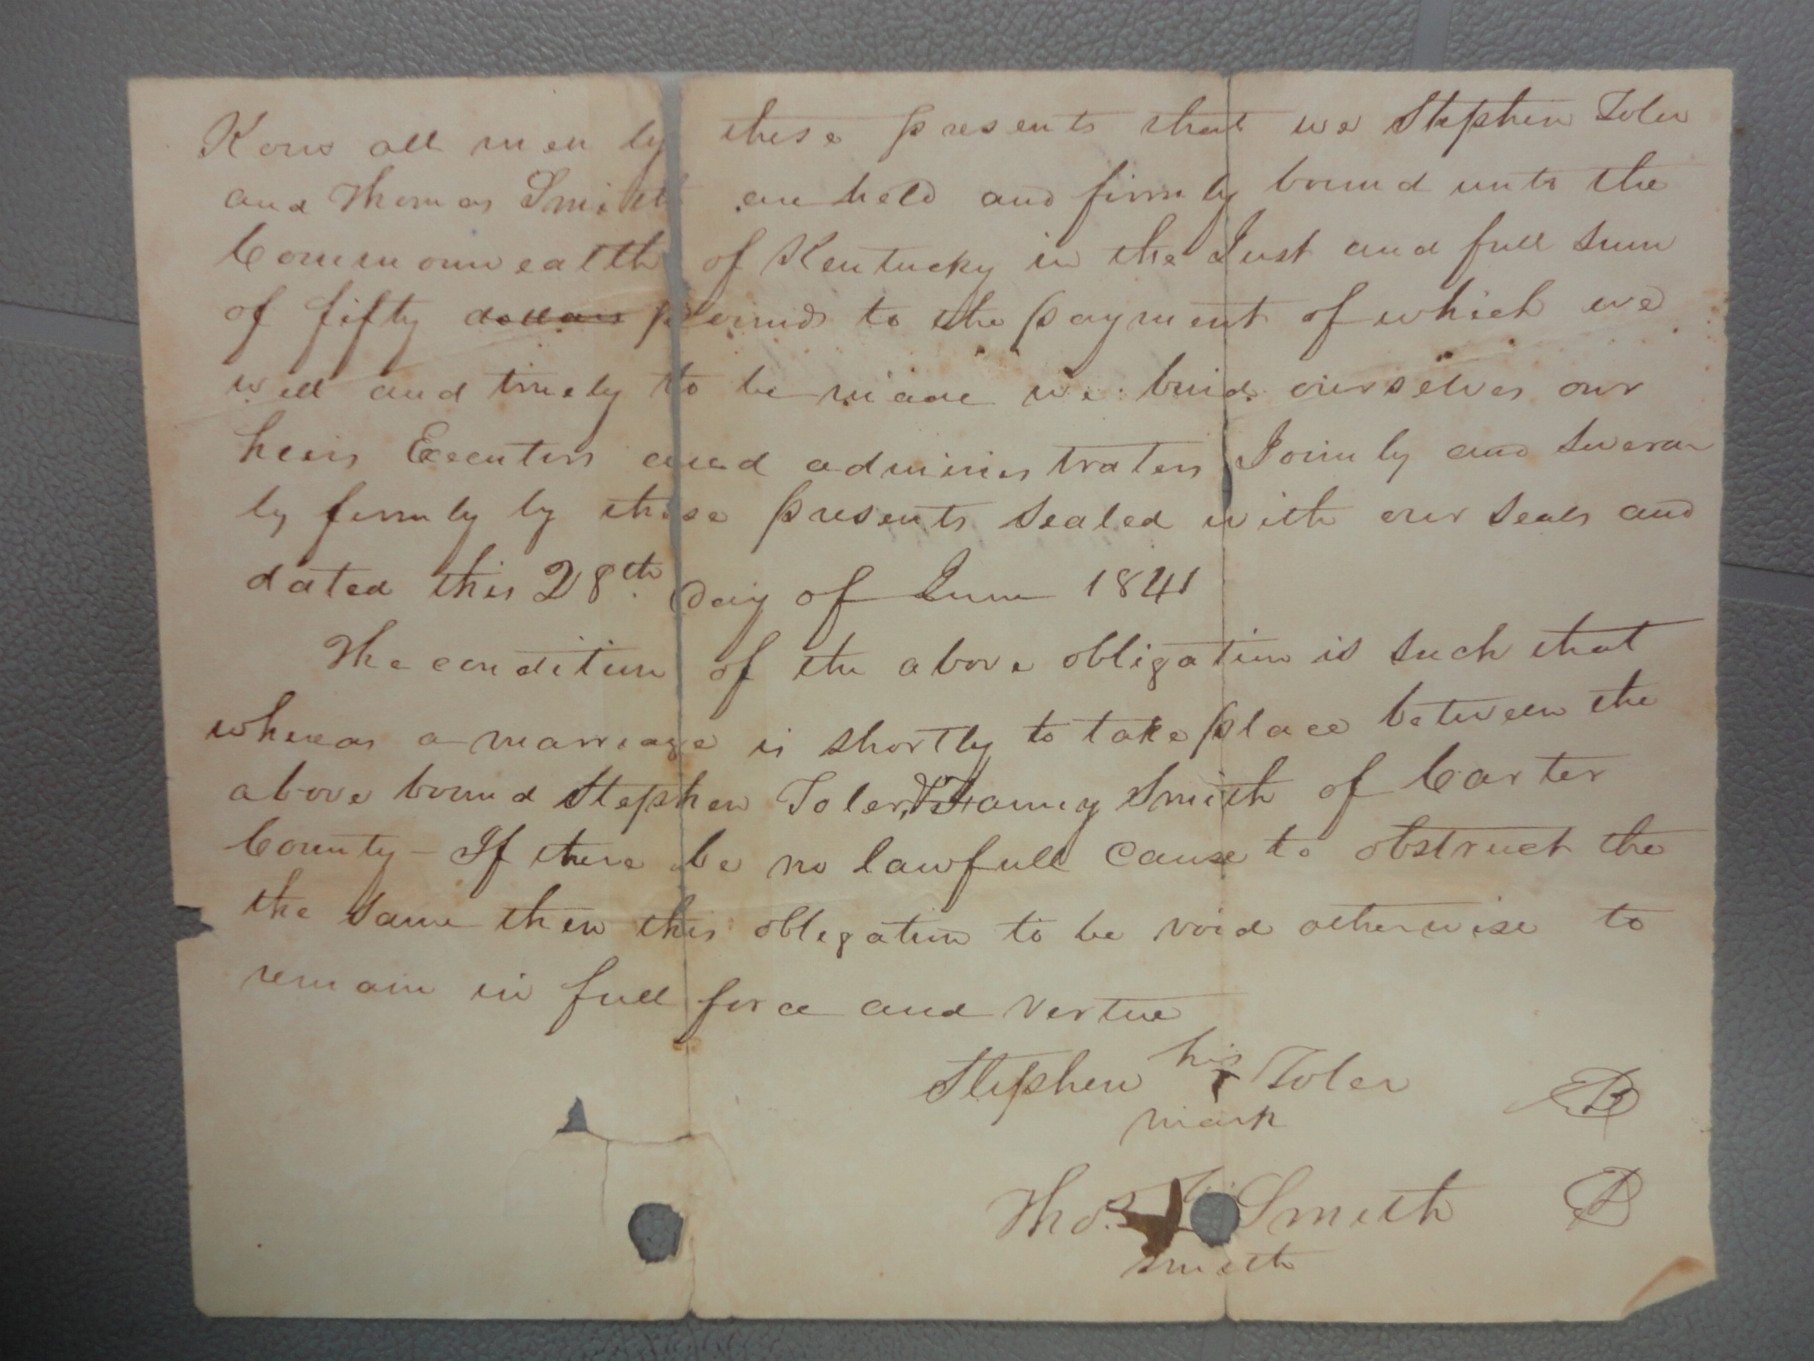 Know all men by these presents that we Stephen Toler
and Thomas Smith are held and firmly bound unto the
Commonwealth of Kentucky in the Just and full sum
of fifty dollars pounds to the payment of which we
well and truely to be made we bind ourselves our
heirs Executors and administrators Joinly and Severa
ly firmly by these presents sealed with our seals and
dated this 28th day of June 1841
The condition of the above obligation is such that
whereas a marriage is shortly to take place between the
above bound Stephen Toler & Fanny Smith of Carter
County - If there be no lawfull cause to obstruct the
the same then this obligation to be void otherwise to
remain in full force and vertue
Stephen his Toler
mark
Thos. Smith
smith